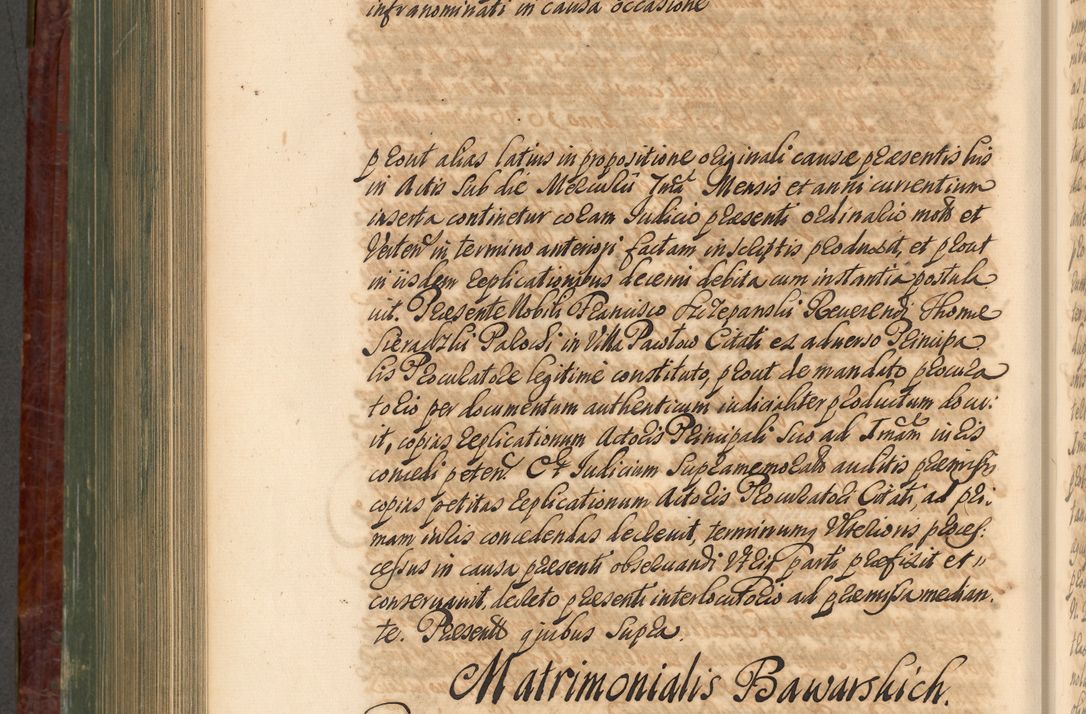 infranominati in causa occasione
prout alias latius in propositione originali causæ præsentis his
in Actis sub die Mercurii Jma Mensis et anni currentium
inserta continetur coram Iudicio præsenti ordinario mot et
Verten in termino anteriori factam in scriptis produxit, et prout
in iisdem replicationibus decerni debita cum instantia postula
uit. Præsente Nobili Francisco Szczepanski Reverendi Thomæ
Sieradzki Parochi in Villa Pawłow Citati ex adverso Principa
lis Procuratore legitime constituto, prout de mandato procura
torio per documentum authenticum iudicialiter productum docu-
it, copias replicationum Actoris Principali suo ad Imam in eis
concedi peten. Et Iudicium supramemorat auditis præmissis
copias petitas replicationum Actoris Procuratori Citati, ad pri-
mam in eis concedendas decrevit, terminum Ulterioris proces-
cessus in causa præsenti observandi Utriq parti præfixit et
conservavit, decreto præsenti interlocutorio ad præmissa median-
te. Præsent quibus supra.
Matrimonialis Bawarskich.